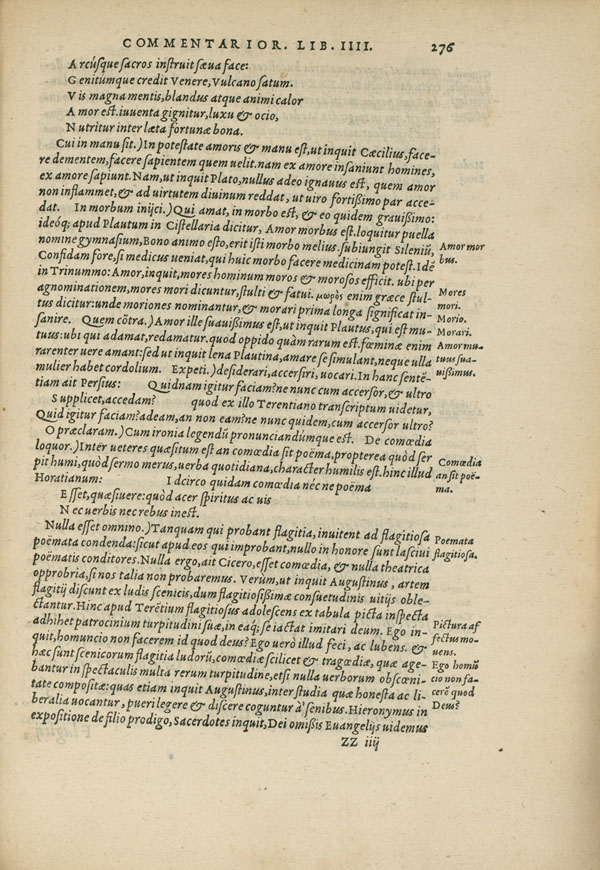 COMMENTARIOR. LIB. IIII. 276
Arcúsque sacros instruit sæua face:
Genitúmque credit Venere, Vulcano satum.
Vis magna mentis, blandus atque animi calor
Amor est. iuuenta gignitur, luxu & ocio,
Nutritur inter læta fortunæ bona.
Cui in manu sit.) In potestate amoris & manu est, ut inquit Cæcilius, face-
re dementem, facere sapientem quem uelit. nam ex amore insaniunt homines,
ex amore sapiunt. Nam, ut inquit Plato, nullus adeo ignauus est, quem amor
non inflammet, & ad uirtutem diuinum reddat, ut uiro fortißimo par acce-
dat. In morbum inijci.) Qui amat, in morbo est, & eo quidem grauißimo:
ideóq; apud Plautum in Cistellaria dicitur, Amor morbus est. loquitur puella
nomine gymnasium, Bono animo esto, erit isti morbo melius. subiungit Sileniũ,
Confidam fore, si medicus ueniat, qui huic morbo facere medicinam potest. Idẽ
in Trinummo: Amor, inquit, mores hominum moros & morosos efficit. ubi per
agnominationem, mores mori dicuntur, stulti & fatui. μωρὸς enim græce stul-
tus dicitur: unde moriones nominantur, & morari prima longa significat in-
sanire. Quem cõtra.) Amor ille suauißimus est, ut inquit Plautus, qui est mu-
tuus: ubi qui adamat, redamatur. quod oppido quàm rarum est. fœminæ enim
rarenter uere amant: sed ut inquit lena Plautina, amare se simulant, neque ulla
mulier habet cordolium. Expeti.) desiderari, accersiri, uocari. In hanc sentẽ-
tiam ait Persius: Quidnam igitur faciam? ne nunc cum accersor, & ultro
Supplicet, accedam? quod ex illo Terentiano transcriptum uidetur,
Quid igitur faciam? adeam, an non eam? ne nunc quidem, cum accersor ultro?
O præclaram.) Cum ironia legendũ pronunciandúmque est. De comœdia
loquor.) Inter ueteres quæsitum est an comœdia sit poëma, propterea quòd ser
pit humi, quòd sermo merus, uerba quotidiana, character humilis est. hinc illud
Horatianum: Idcirco quidam comœdia néc ne poëma
Esset, quæsiuere: quòd acer spiritus ac uis
Nec uerbis nec rebus inest.
Nulla esset omnino.) Tanquam qui probant flagitia, inuitent ad flagitiosa
poëmata condenda: sicut apud eos qui improbant, nullo in honore sunt lasciui
poëmatis conditores. Nulla ergo, ait Cicero, esset comœdia, & nulla theatrica
opprobria, si nos talia non probaremus. Verùm, ut inquit Augustinus, artem
flagitij discunt ex ludis scenicis, dum flagitiosißimæ consuetudinis uitijs oble-
ctantur. Hinc apud Terẽtium flagitiosus adolescens ex tabula picta inspecta
adhibet patrocinium turpitudini suæ, in eaq; se iactat imitari deum. Ego in-
quit, homuncio non facerem id quod deus? Ego uerò illud feci, ac lubens. &
hæc sunt scenicorum flagitia ludorũ, comœdiæ scilicet & tragœdiæ, quæ age-
bantur in spectaculis multa rerum turpitudine, etsi nulla uerborum obscœni-
tate compositæ: quas etiam inquit Augustinus, inter studia quæ honesta ac li-
beralia uocantur, pueri legere & discere coguntur à senibus. Hieronymus in
expositione de filio prodigo, Sacerdotes inquit, Dei omißis Euangelijs uidemus
ZZ iiij
Amor mor
bus.
Mores
mori.
Morio.
Morari.
Amor mu-
tuus sua-
uißimus.
Comœdia
an sit poë-
ma.
Poemata
flagitiosa.
Pictura af
fectus mo-
uens.
Ego homũ
cio non fa-
cerẽ quod
Deus?